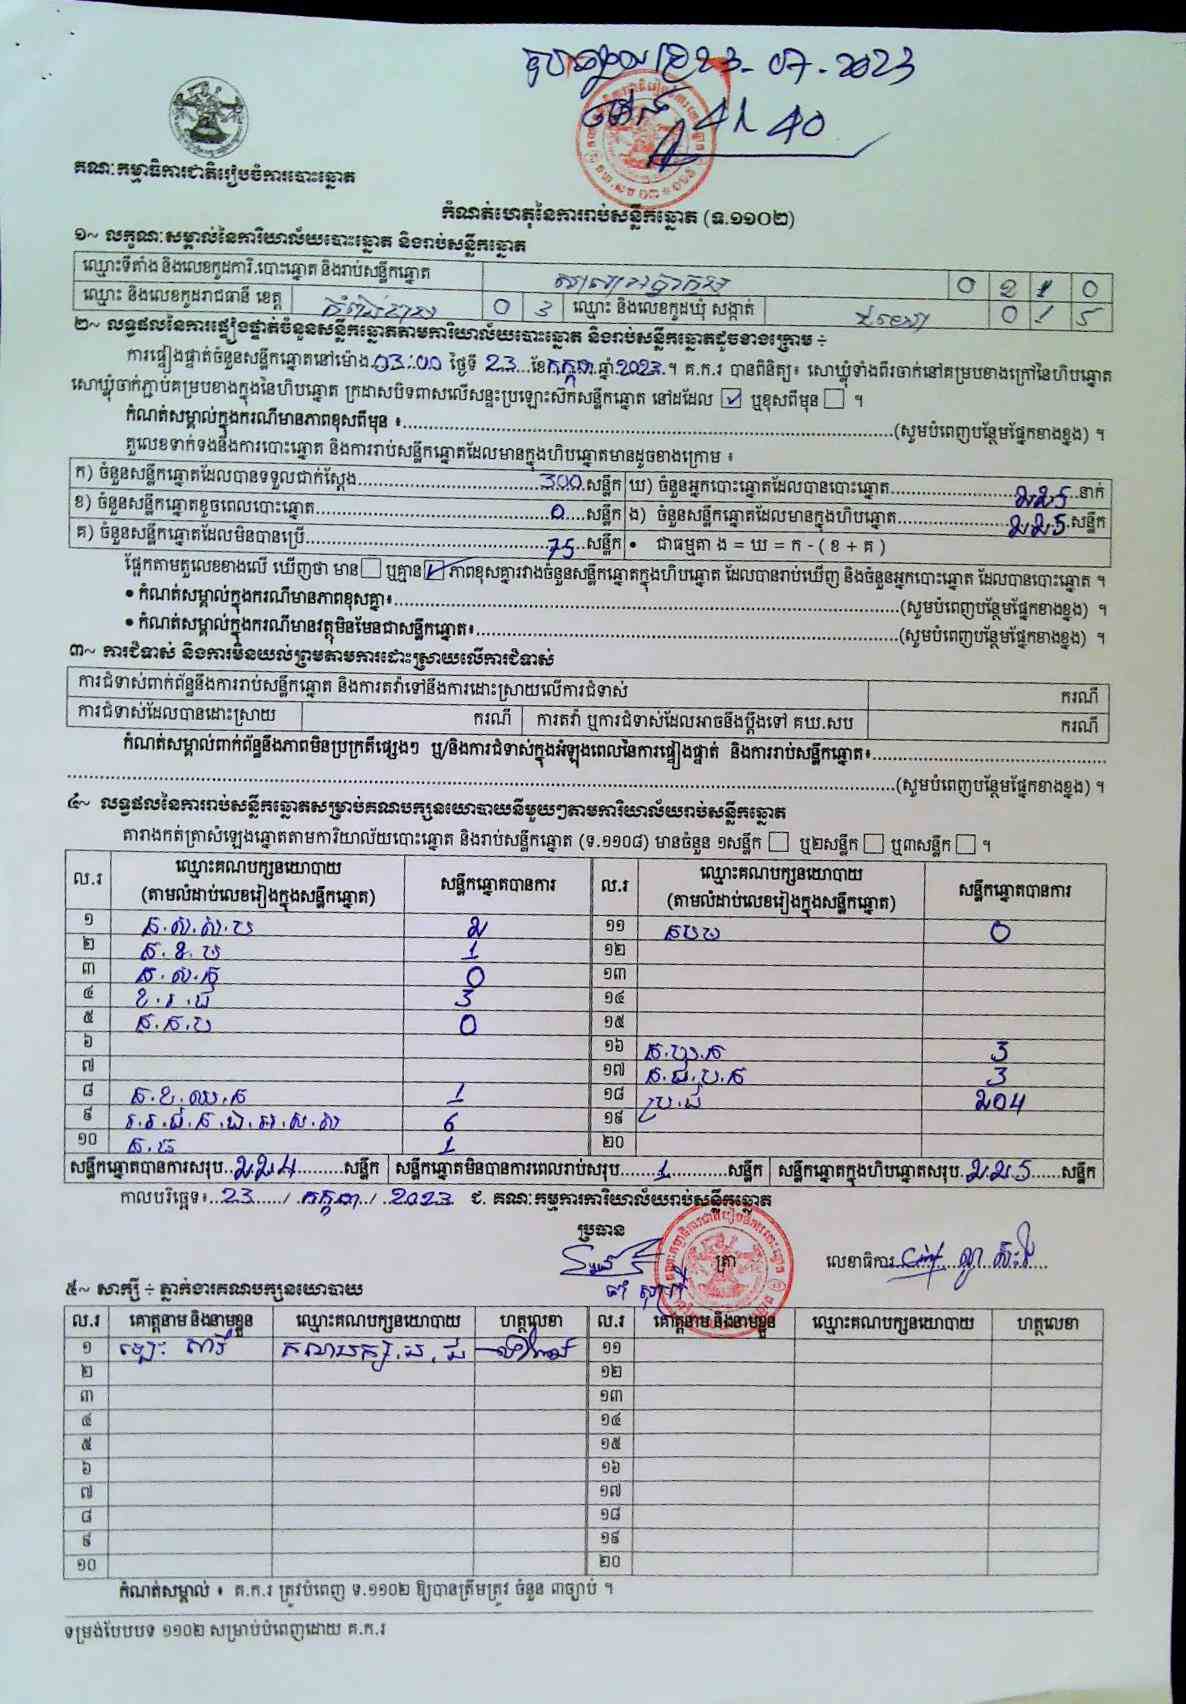 23-07-2023
គណៈកម្មាធិការជាតិរៀបចំការបោះឆ្នោត
កំណត់ហេតុនៃការរាប់សន្លឹកឆ្នោត (ទ.១១០២)
១~ លក្ខណៈសម្គាល់នៃការិយាល័យបោះឆ្នោត និងរាប់សន្លឹកឆ្នោត
ឈ្មោះទីតាំង និងលេខកូដការិ.បោះឆ្នោត និងរាប់សន្លឹកឆ្នោត 0 2 1 0
ឈ្មោះ និងលេខកូដរាជធានី ខេត្ត កំពង់ចាម 0 3 ឈ្មោះ និងលេខកូដឃុំ សង្កាត់ 0 1 5
២~ លទ្ធផលនៃការផ្ទៀងផ្ទាត់ចំនួនសន្លឹកឆ្នោតតាមការិយាល័យបោះឆ្នោត និងរាប់សន្លឹកឆ្នោតដូចខាងក្រោម ÷
ការផ្ទៀងផ្ទាត់ចំនួនសន្លឹកឆ្នោតនៅម៉ោង 03:00 ថ្ងៃទី 23 ខែ កក្កដា ឆ្នាំ 2023 ។ គ.ក.រ បានពិនិត្យ៖ សោឃ្លុំទាំងពីរចាក់នៅគម្របខាងក្រៅនៃហិបឆ្នោត
សោឃ្លុំចាក់ភ្ជាប់គម្របខាងក្នុងនៃហិបឆ្នោត ក្រដាសបិទពាសលើសន្ទះប្រឡោះស៊កសន្លឹកឆ្នោត នៅដដែល ☑ ឬខុសពីមុន ☐ ។
កំណត់សម្គាល់ក្នុងករណីមានភាពខុសពីមុន ៖ (សូមបំពេញបន្ថែមផ្នែកខាងខ្នង) ។
តួលេខទាក់ទងនឹងការបោះឆ្នោត និងការរាប់សន្លឹកឆ្នោតដែលមានក្នុងហិបឆ្នោតមានដូចខាងក្រោម ៖
ក) ចំនួនសន្លឹកឆ្នោតដែលបានទទួលជាក់ស្តែង 300 សន្លឹក ឃ) ចំនួនអ្នកបោះឆ្នោតដែលបានបោះឆ្នោត 225 នាក់
ខ) ចំនួនសន្លឹកឆ្នោតខូចពេលបោះឆ្នោត 0 សន្លឹក ង) ចំនួនសន្លឹកឆ្នោតដែលមានក្នុងហិបឆ្នោត 225 សន្លឹក
គ) ចំនួនសន្លឹកឆ្នោតដែលមិនបានប្រើ 75 សន្លឹក • ជាធម្មតា ង = ឃ = ក - ( ខ + គ )
ផ្អែកតាមតួលេខខាងលើ ឃើញថា មាន ☐ ឬគ្មាន ☑ ភាពខុសគ្នារវាងចំនួនសន្លឹកឆ្នោតក្នុងហិបឆ្នោត ដែលបានរាប់ឃើញ និងចំនួនអ្នកបោះឆ្នោត ដែលបានបោះឆ្នោត ។
• កំណត់សម្គាល់ក្នុងករណីមានភាពខុសគ្នា៖ (សូមបំពេញបន្ថែមផ្នែកខាងខ្នង) ។
• កំណត់សម្គាល់ក្នុងករណីមានវត្ថុមិនមែនជាសន្លឹកឆ្នោត៖ (សូមបំពេញបន្ថែមផ្នែកខាងខ្នង) ។
៣~ ការជំទាស់ និងការមិនយល់ព្រមតាមការដោះស្រាយលើការជំទាស់
ការជំទាស់ពាក់ព័ន្ធនឹងការរាប់សន្លឹកឆ្នោត និងការតវ៉ាទៅនឹងការដោះស្រាយលើការជំទាស់ ករណី
ការជំទាស់ដែលបានដោះស្រាយ ករណី ការតវ៉ា ឬការជំទាស់ដែលអាចនឹងប្តឹងទៅ គឃ.សប ករណី
កំណត់សម្គាល់ពាក់ព័ន្ធនឹងភាពមិនប្រក្រតីផ្សេងៗ ឬ/និងការជំទាស់ក្នុងអំឡុងពេលនៃការផ្ទៀងផ្ទាត់ និងការរាប់សន្លឹកឆ្នោត៖
(សូមបំពេញបន្ថែមផ្នែកខាងខ្នង) ។
៤~ លទ្ធផលនៃការរាប់សន្លឹកឆ្នោតសម្រាប់គណបក្សនយោបាយនីមួយៗតាមការិយាល័យរាប់សន្លឹកឆ្នោត
តារាងកត់ត្រាសំឡេងឆ្នោតតាមការិយាល័យបោះឆ្នោត និងរាប់សន្លឹកឆ្នោត (ទ.១១០៨) មានចំនួន ១សន្លឹក ☐ ឬ២សន្លឹក ☐ ឬ៣សន្លឹក ☐ ។
ល.រ ឈ្មោះគណបក្សនយោបាយ (តាមលំដាប់លេខរៀងក្នុងសន្លឹកឆ្នោត) សន្លឹកឆ្នោតបានការ ល.រ ឈ្មោះគណបក្សនយោបាយ (តាមលំដាប់លេខរៀងក្នុងសន្លឹកឆ្នោត) សន្លឹកឆ្នោតបានការ
១ 2 ១១ 0
២ 1 ១២
៣ 0 ១៣
៤ 3 ១៤
៥ 0 ១៥
៦ ១៦ 3
៧ ១៧ 3
៨ 1 ១៨ 204
៩ 6 ១៩
១០ 1 ២០
សន្លឹកឆ្នោតបានការសរុប 224 សន្លឹក សន្លឹកឆ្នោតមិនបានការពេលរាប់សរុប 1 សន្លឹក សន្លឹកឆ្នោតក្នុងហិបឆ្នោតសរុប 225 សន្លឹក
កាលបរិច្ឆេទ៖ 23 / កក្កដា / 2023 ជ. គណៈកម្មការការិយាល័យរាប់សន្លឹកឆ្នោត
ប្រធាន ត្រា លេខាធិការ
៥~ សាក្សី ÷ ភ្នាក់ងារគណបក្សនយោបាយ
ល.រ គោត្តនាម និងនាមខ្លួន ឈ្មោះគណបក្សនយោបាយ ហត្ថលេខា ល.រ គោត្តនាម និងនាមខ្លួន ឈ្មោះគណបក្សនយោបាយ ហត្ថលេខា
១ ១១
២ ១២
៣ ១៣
៤ ១៤
៥ ១៥
៦ ១៦
៧ ១៧
៨ ១៨
៩ ១៩
១០ ២០
កំណត់សម្គាល់ ៖ គ.ក.រ ត្រូវបំពេញ ទ.១១០២ ឱ្យបានត្រឹមត្រូវ ចំនួន ៣ច្បាប់ ។
ទម្រង់បែបបទ ១១០២ សម្រាប់បំពេញដោយ គ.ក.រ